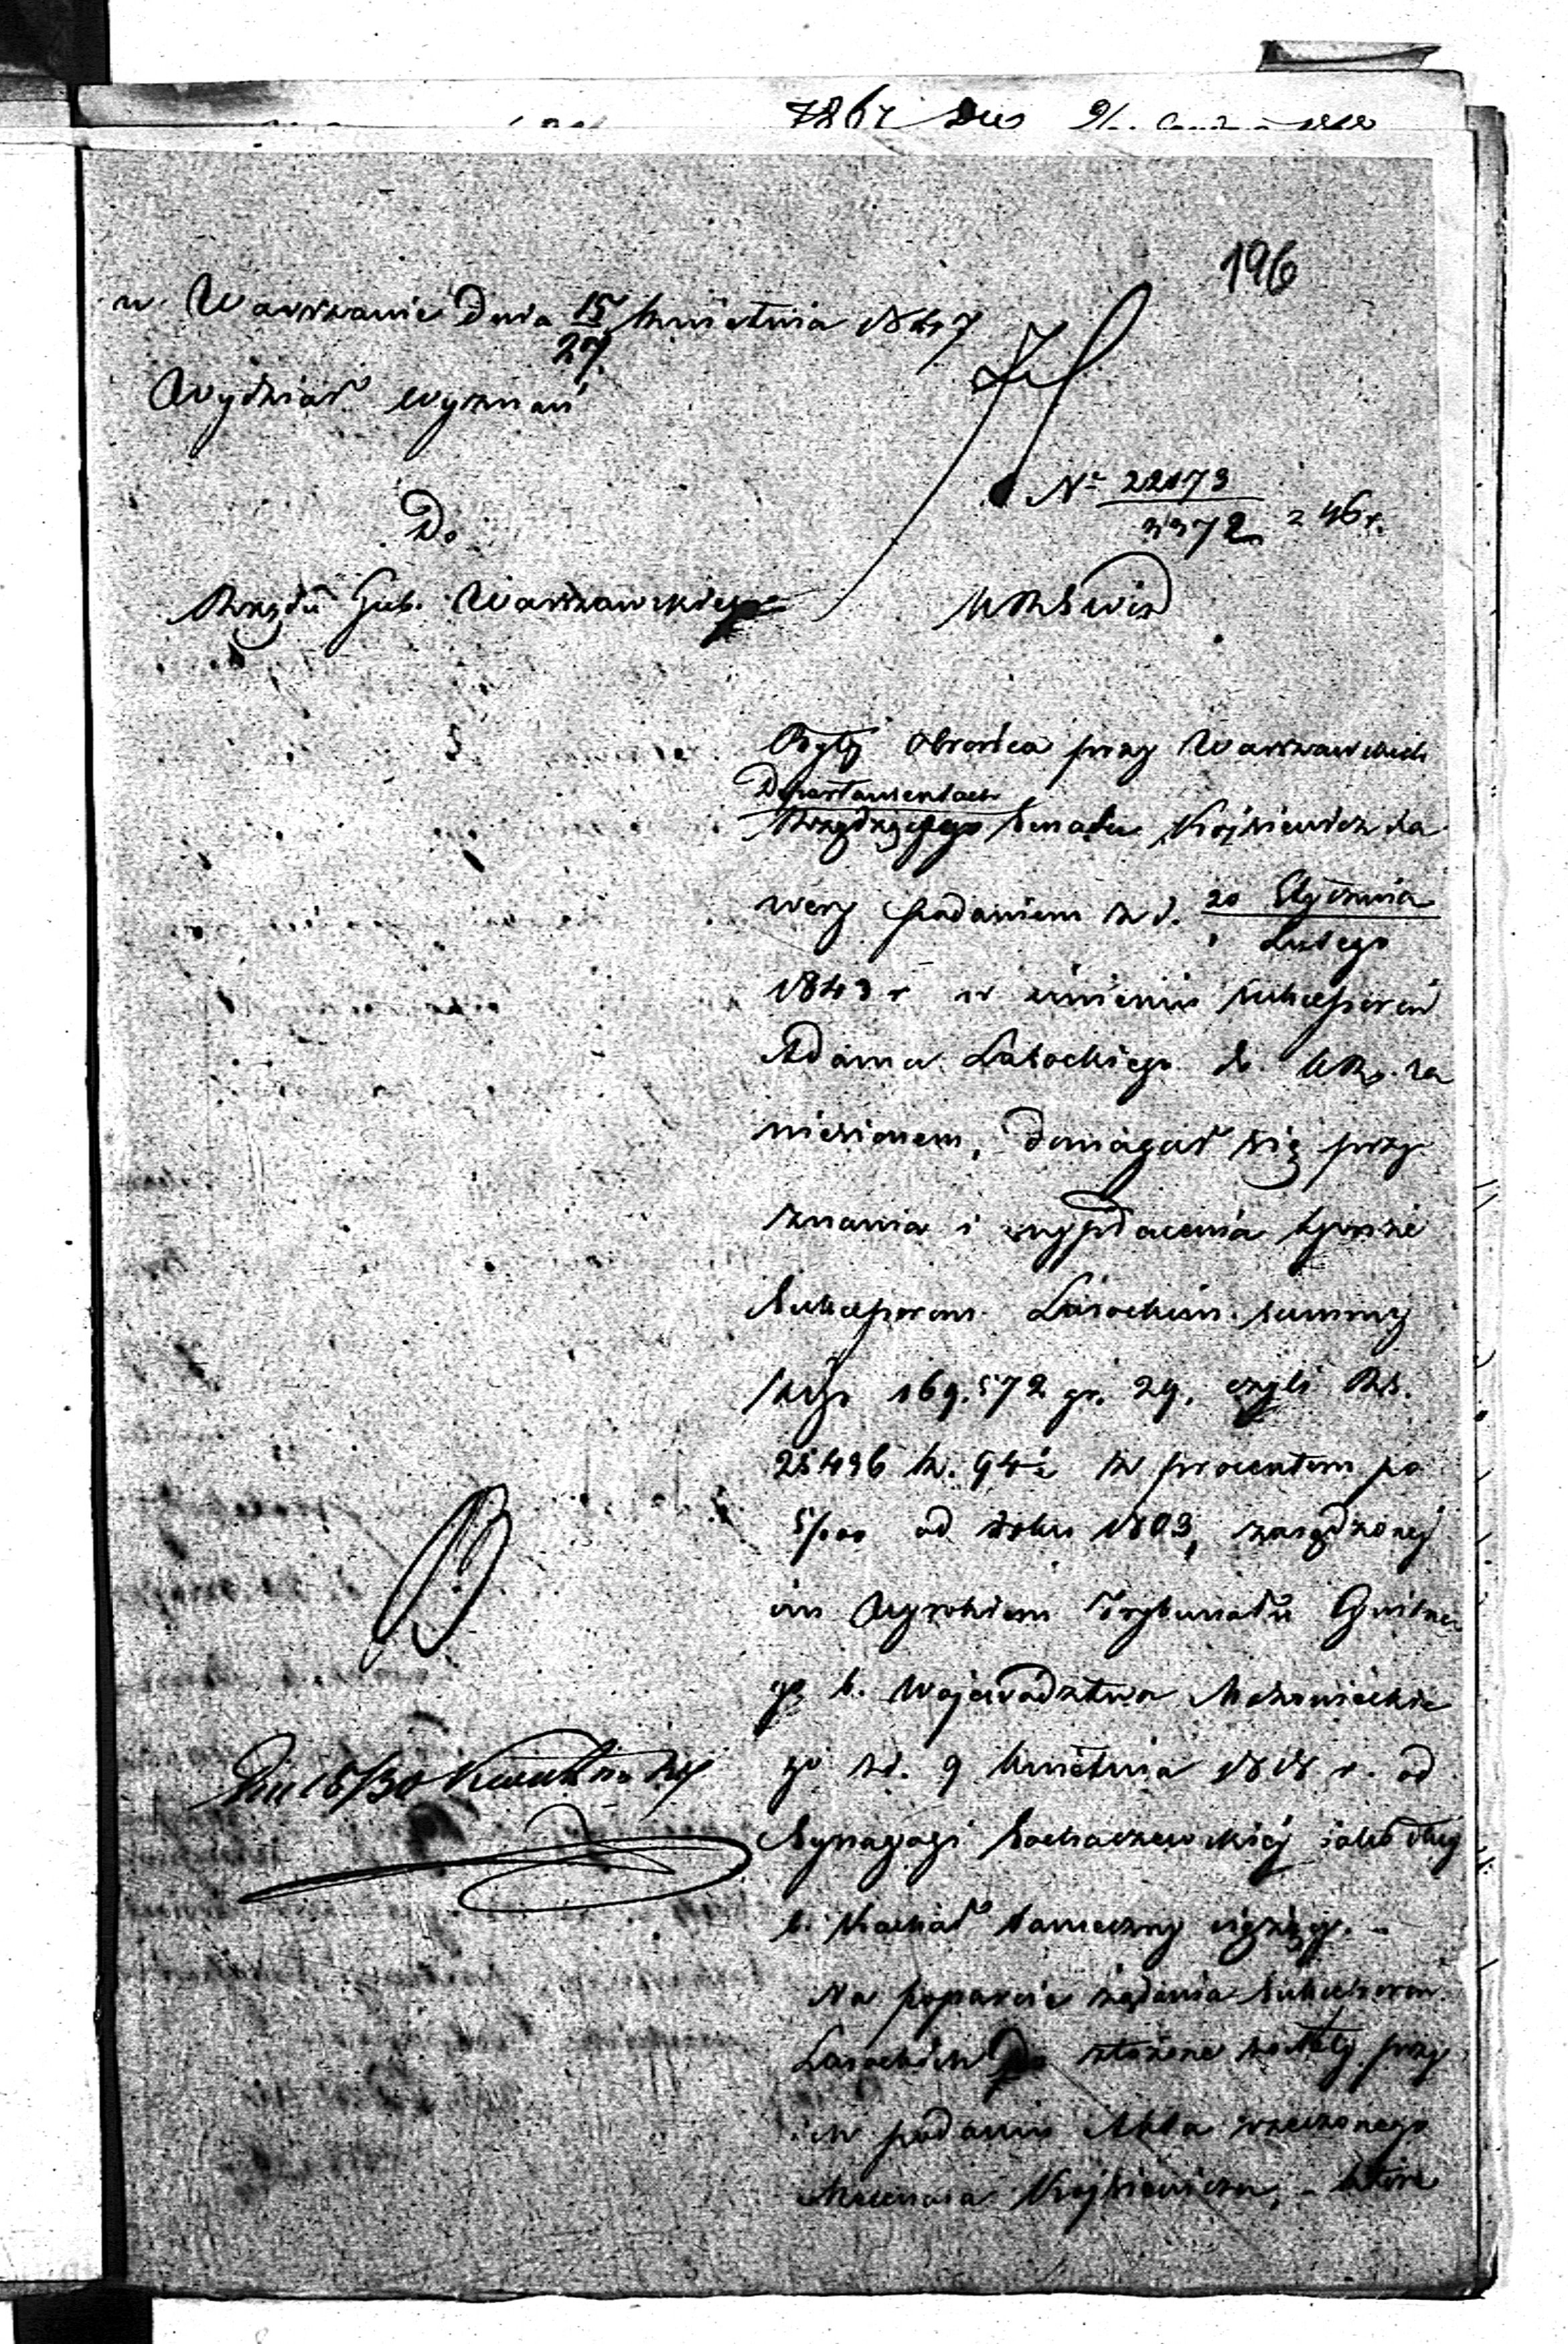 196
w Warszawie Dnia 15/27 Kwietnia 1847
Wydział Wyznań
Do
Rządu Gub. Warszawskiego
Nr 22173/3372 z 46 r.
KRSWiD
Były obrońca przy Warszawskich
Departamentach
Rządzącego Senatu Krajsiewicz Xa
wery podaniem z d. 20 Stycznia / 1 Lutego
1843 r w imieniu Sukcessorów
Adama Lasockiego do KR. za
niesionem, domagał się przy
znania i wypłacenia tymże
Sukcessorom Lasockim summy
złp 169.572 gr. 29, czyli Rs.
25436 k. 94½ z procentem po
5/100 od roku 1803, zasądzonej
im Wyrokiem Trybunału Cywilne
go b. Województwa Mazowieckie
go z d. 9 Kwietnia 1818 r. od
Synagogi Sochaczewskiej jako dług
b. Kahał tameczny ciążący. -
Na poparcie żądania Sukcessorów
Lasockich złożone zostały przy
ich podaniu Akta rzeczonego
Mecenasa Krajsiewicza, - które
Dn 18/30 Kwietnia